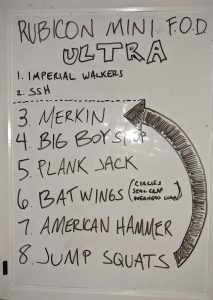 RUBICON MINI F.O.D.
ULTRA
1. IMPERIAL WALKERS
2. SSH
3. MERKIN
4. BIG BOY SITUP
5. PLANK JACK
6. BATWINGS (CIRCLES
SEAL CLAP
OVERHEAD CLAP)
7. AMERICAN HAMMER
8. JUMP SQUATS